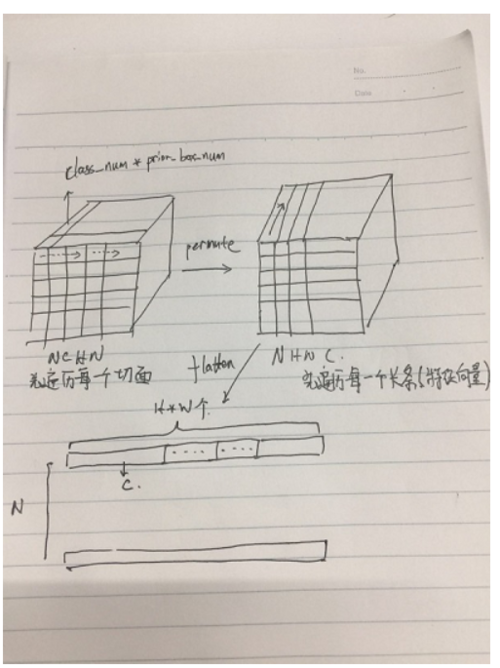 No.
Date
class_num * prior_box_num
permute
NCHW
先遍历每一个切面
flatten
NHWC.
先遍历每一个长条(特征向量)
H*W个
C.
N